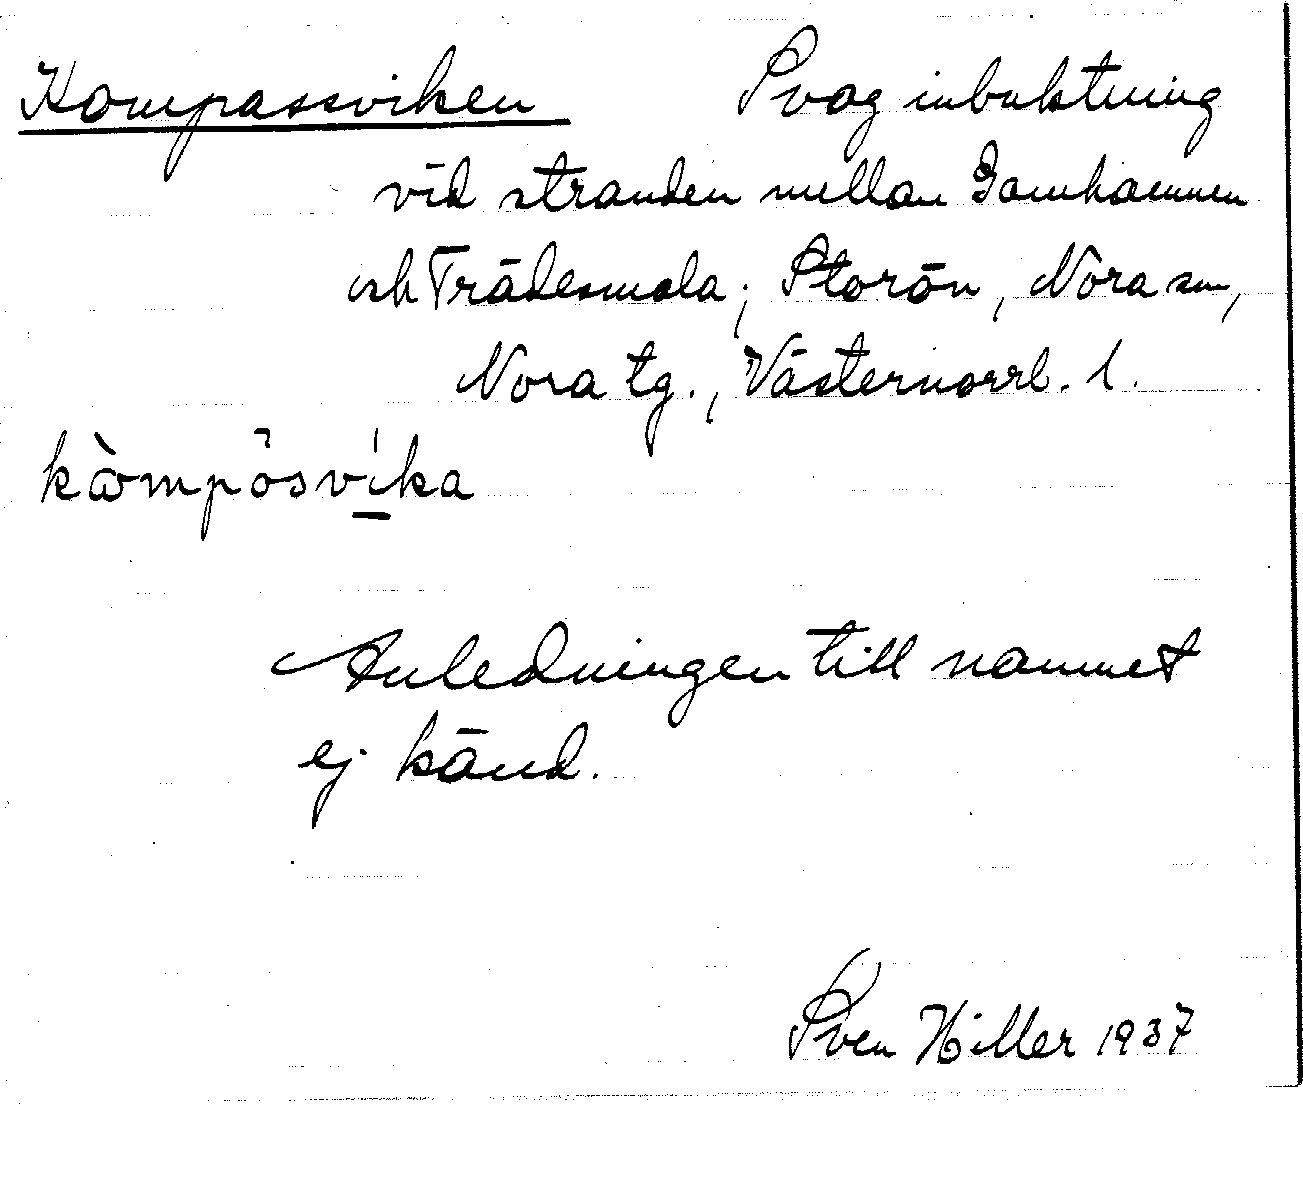 Kompassviken Svag inbuktning
vid stranden mellan Gamhamnen
och Trädesmola; Storön, Nora sn,
Nora tg., Västernorrl. l.
kòmpösvika
Anledningen till namnet
ej känd.
Sven Hiller 1937